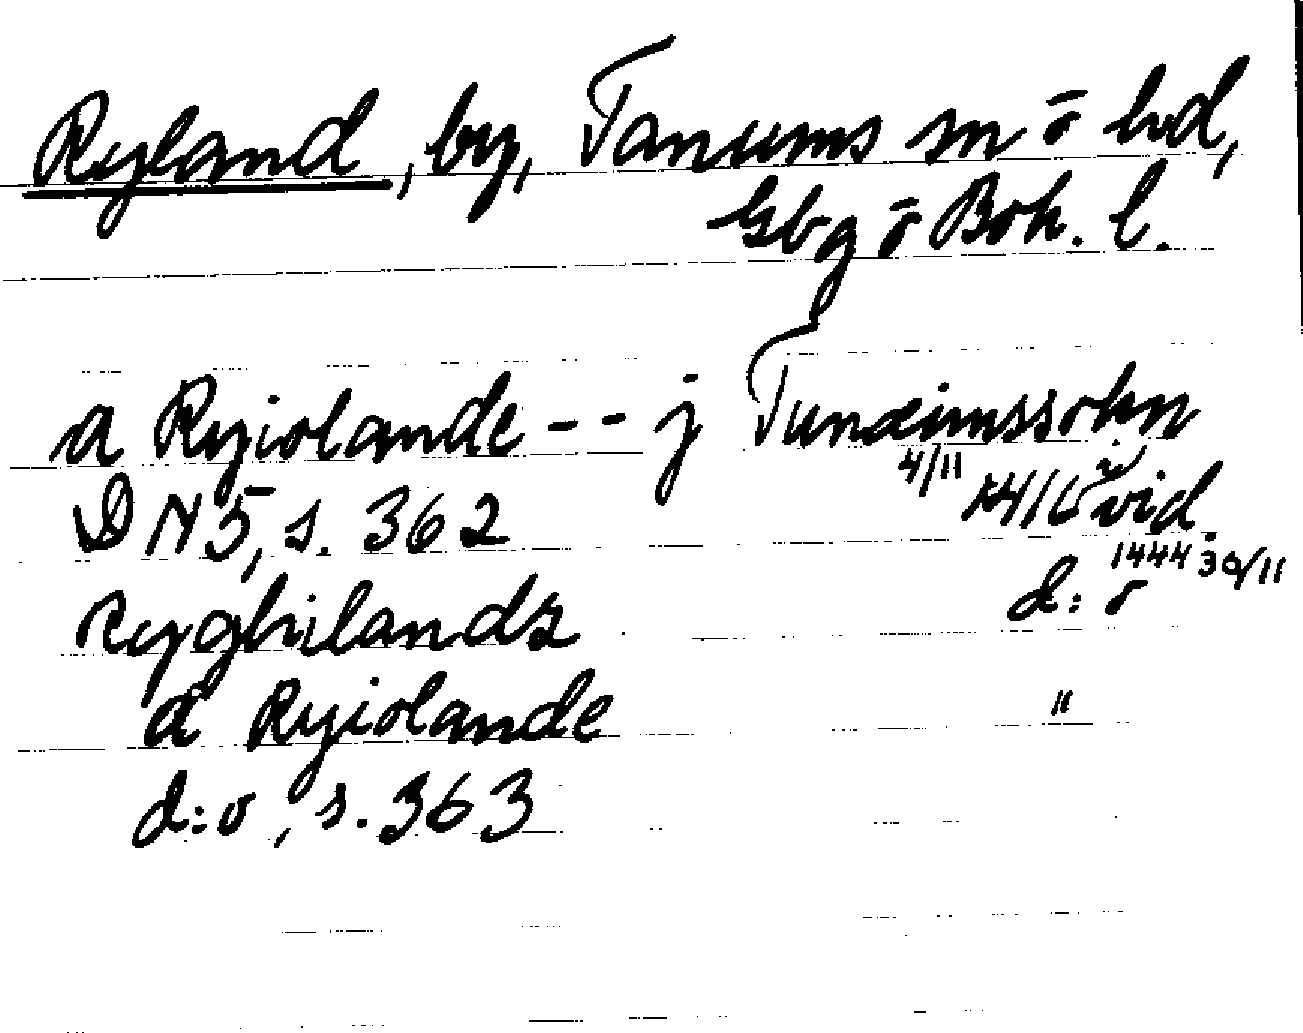 Ryland, by, Tanums sn o hd,
Gbg o Boh. l.
a Ryiolande -- j Tunæimssokn
4/11
DN 5, s. 362 vid.
1444 30/11
Ryghilandz d:o
a Ryiolande "
d:o, s. 363